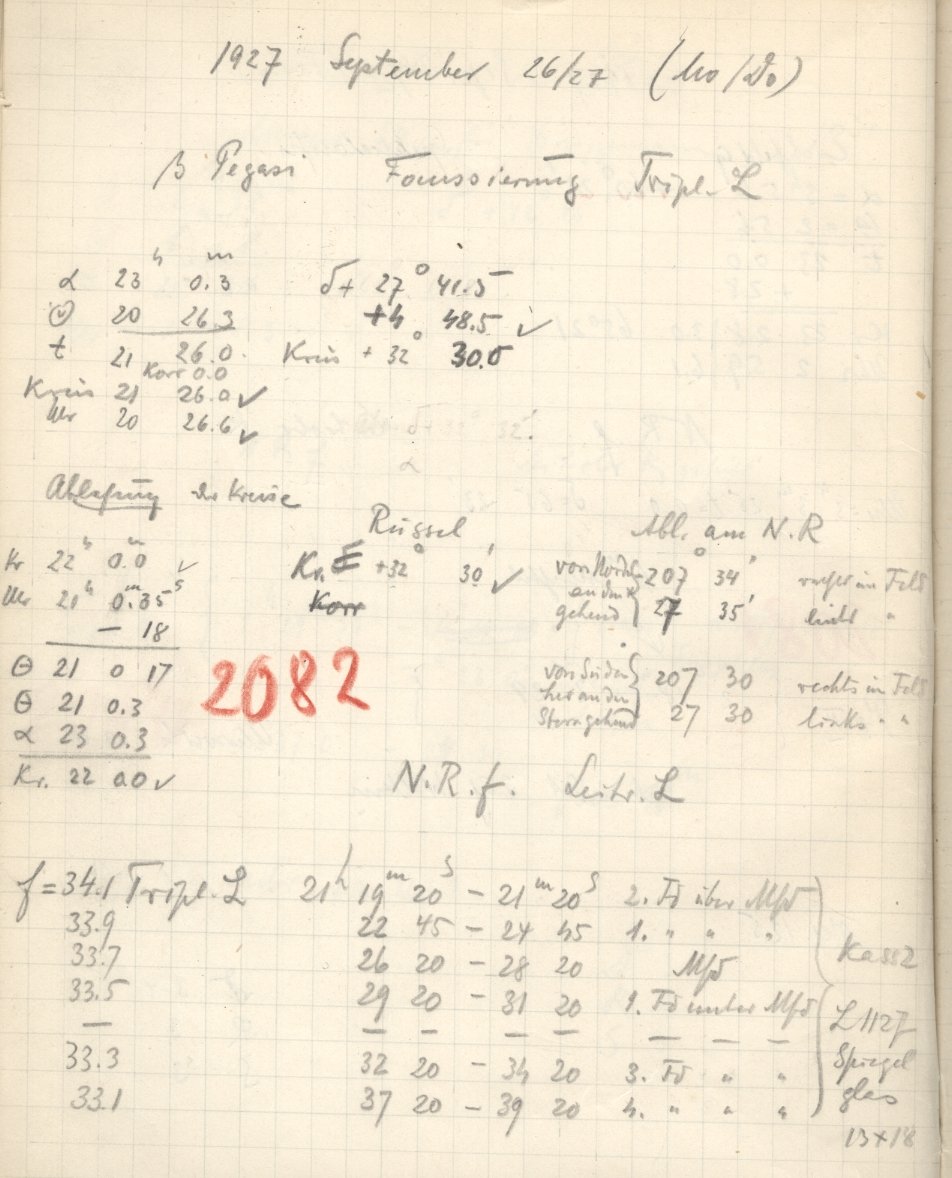 1927 September 26/27 (Mo/Do)
β Pegasi Foussierung Tripl. L
α 23ʰ 0.3ᵐ δ+ 27° 41.5
☉ 20 26.3 +4 48.5 ✓
t 21 26.0 Kreis + 32° 30.0
Korr 0.0
Kreis 21 26.0 ✓
Uhr 20 26.6 ✓
Ablesung der Kreise
Russel Abl. am N.R
Kr 22ʰ 0.0ᵐ ✓ Kr. E +32° 30' ✓ von Nord 207° 34' rechts im Feld
Uhr 21ʰ 0.ᵐ35ˢ Korr gehend 27 35' links "
– 18
Θ 21 0 17 2082 von Süden 207 30 rechts im Feld
Θ 21 0.3 her an den
α 23 0.3 Stern gehend 27 30 links " "
Kr. 22 0.0 ✓ N.R.f. Leitr. L
f = 34.1 Tripl. L 21ʰ 19ᵐ 20ˢ – 21ᵐ 20ˢ 2. Fd über Mfd
33.9 22 45 – 24 45 1. " " "
33.7 26 20 – 28 20 Mfd Kass2
33.5 29 20 – 31 20 1. Fd unter Mfd L 1127
— — — — — — — —
33.3 32 20 – 34 20 3. Fd " " Spiegel
33.1 37 20 – 39 20 4. " " " glas
13×18